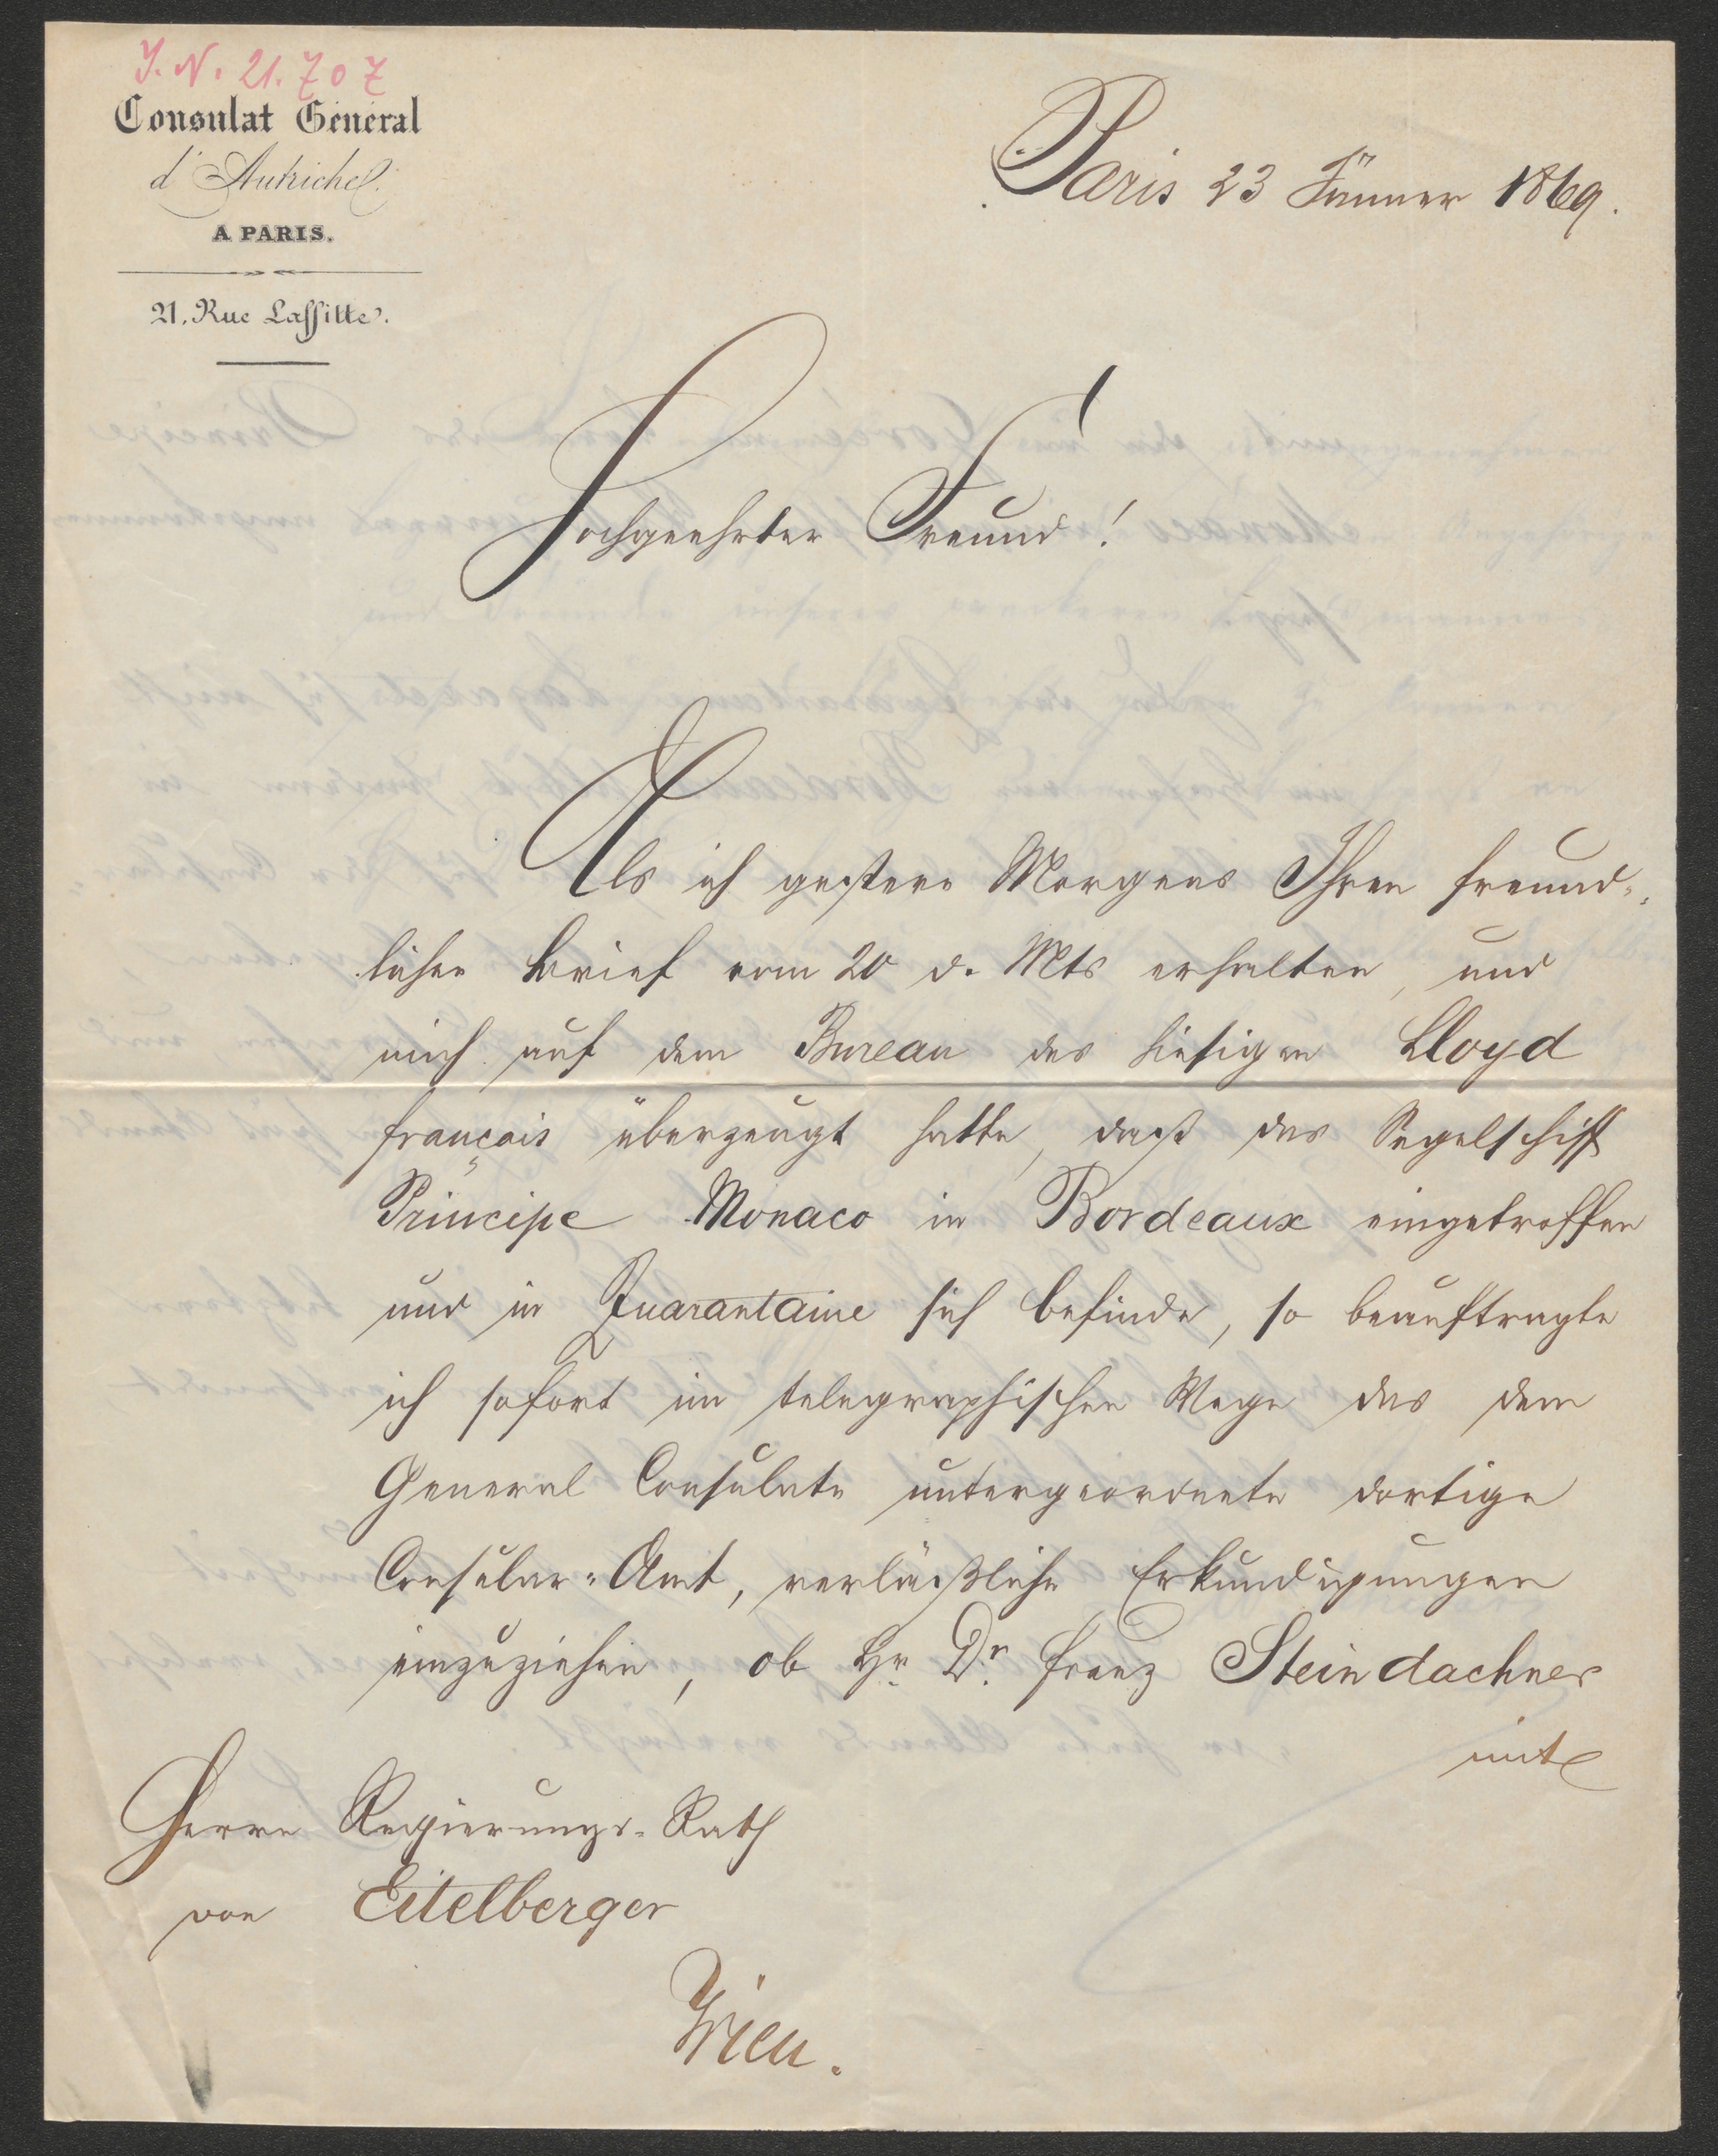 J. N. 21.707
Consulat Général
d'Autriche
A PARIS.
21, Rue Laffitte.
Paris 23 Jänner 1869.
Hochgeehrter Freund!
Als ich gestern Morgens Ihren freund-
lichen Brief vom 20 d. Mts erhalten, und
mich auf dem Bureau des hiesigen Lloyd
français überzeugt hatte, daß das Segelschiff
Principe Monaco in Bordeaux eingetroffen
und in Quarantaine sich befinde, so beauftragte
ich sofort im telegraphischen Wege das dem
General Consulate untergeordnete dortige
Consular-Amt, verläßliche Erkundigungen
einzuziehen, ob Hr. Dr. Franz Steindachner
mit
Herrn Regierungs-Rath
von Eitelberger
Wien.